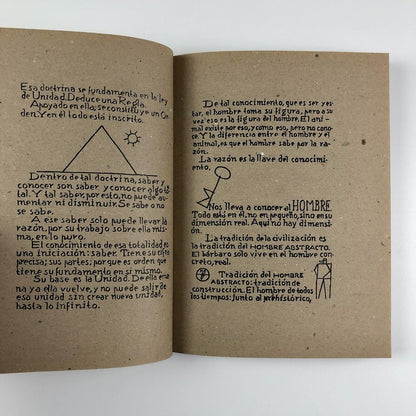 Esa doctrina se fundamenta en la ley
de Unidad. Deduce una Regla.
Apoyado en ella, se constituye un Or-
den. Y en él todo está inscrito.
Dentro de tal doctrina, saber y
conocer son saber y conocer algo to-
tal. Y tal saber, por esto, no puede au-
mentar ni disminuir. Se sabe o no
se sabe.
A ese saber solo puede llevar la
razón, por su trabajo sobre ella mis-
ma, en lo puro.
El conocimiento de esa totalidad es
una iniciación: saber. Tiene su cifra
precisa; sus partes; porque es orden que
tiene su fundamento en si mismo.
Su base es la Unidad. De ella ema
na y a ella vuelve, y no puede salir de
esa unidad sin crear nueva unidad,
hasta lo infinito.
De tal conocimiento, que es ser y es-
tar, el hombre toma su figura, pero a su
vez eso es la figura del hombre. El ani-
mal existe por eso, y como eso, pero no cono-
ce. Y la diferencia entre el hombre y el
animal, es que el hombre sabe por la ra-
zón.
La razón es la llave del conoci-
miento.
Nos lleva a conocer al HOMBRE
Todo está en él, no en pequeño, sino en su
dimensión real. Aquí no hay dimen-
sión.
La tradición de la civilización es
la tradición del HOMBRE ABSTRACTO.
El bárbaro solo vive en el hombre con-
creto, real.
Tradición del HOMBRE
ABSTRACTO: tradición de
construcción. El hombre de todos
los tiempos: junto al prehistórico,